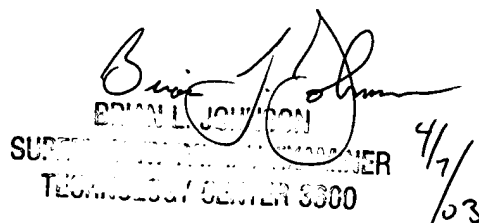 Brian L. Johnson
BRIAN L. JOHNSON
SUPERVISORY PATENT EXAMINER
TECHNOLOGY CENTER 3600
4/7/03